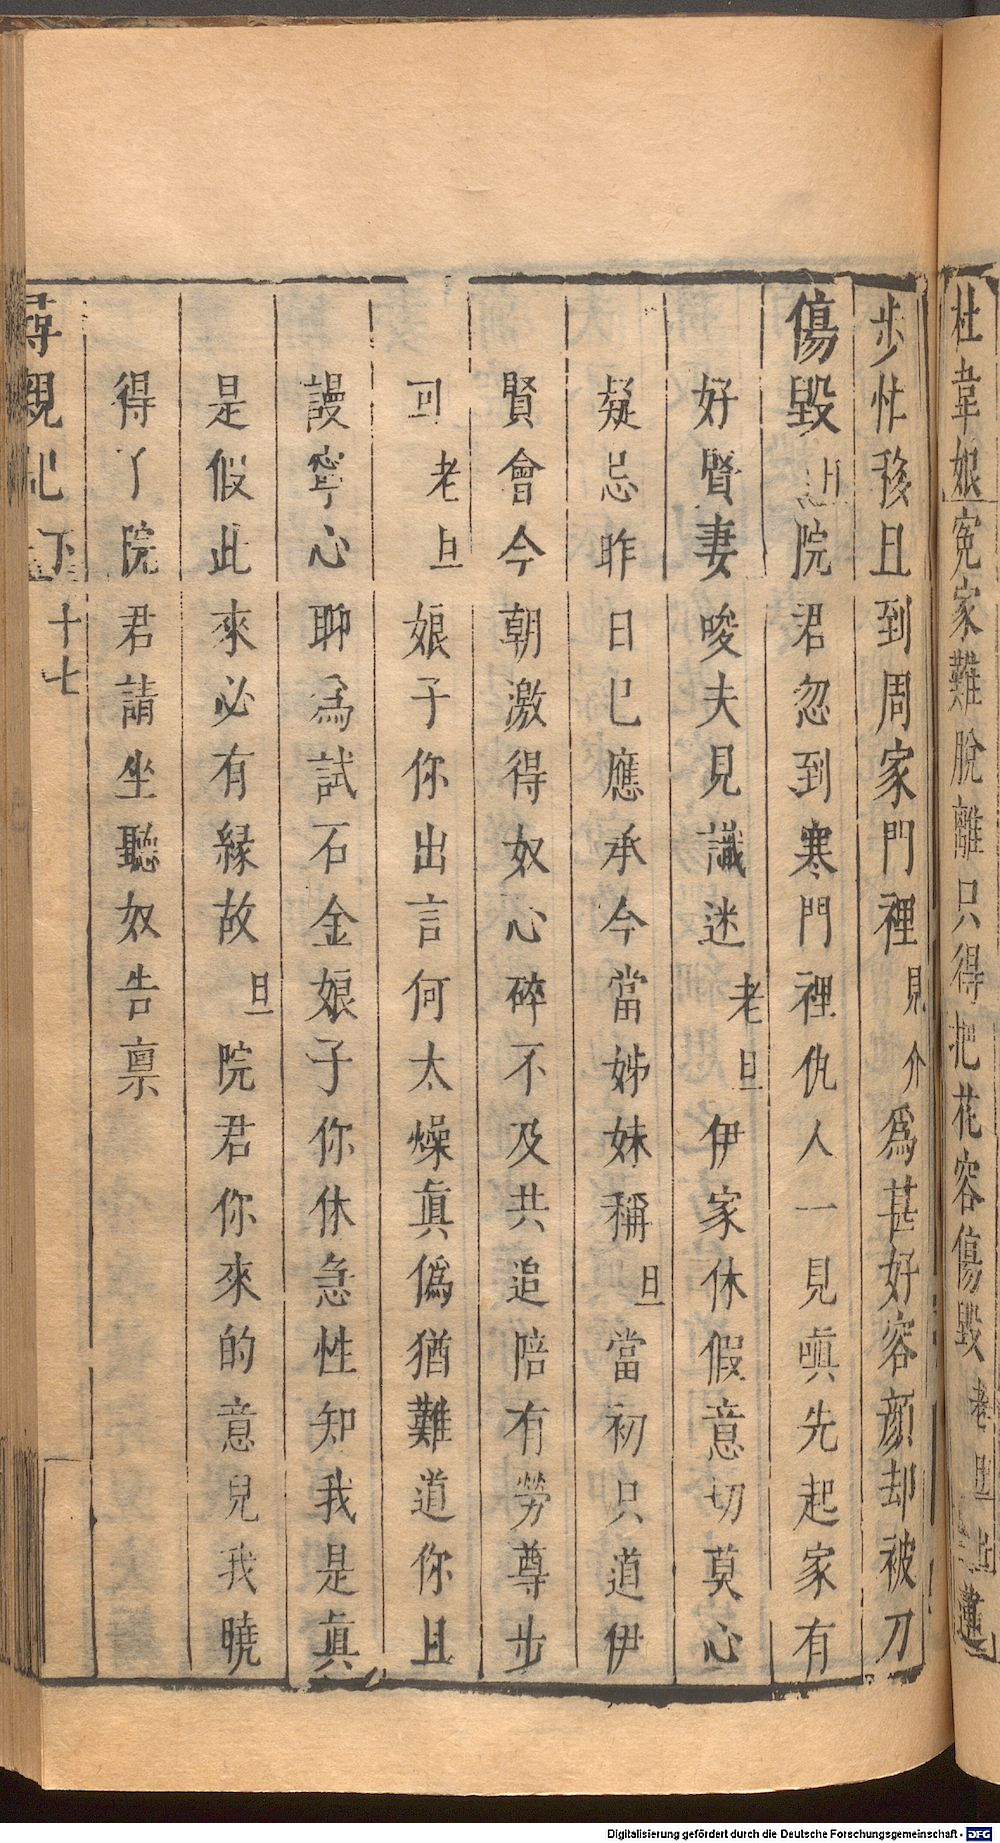 杜韋娘寃家難脫離只得把花容傷毀老旦上蓮
步忙移且到周家門裡見介爲甚好容顔却被刀
傷毀旦院君忽到寒門裡仇人一見嗔先起家有
好賢妻唆夫見讖迷老旦伊家休假意切莫心
疑忌昨日已應承今當姊妹稱旦當初只道伊
賢會今朝激得奴心碎不及共追陪有勞尊步
回老旦娘子你出言何太燥眞僞猶難道你且
謾寧心聊爲試石金娘子你休急性知我是眞
是假此來必有緣故旦院君你來的意兒我曉
得了院君請坐聽奴告禀
尋親記下 十七
Digitalisierung gefördert durch die Deutsche Forschungsgemeinschaft - DFG